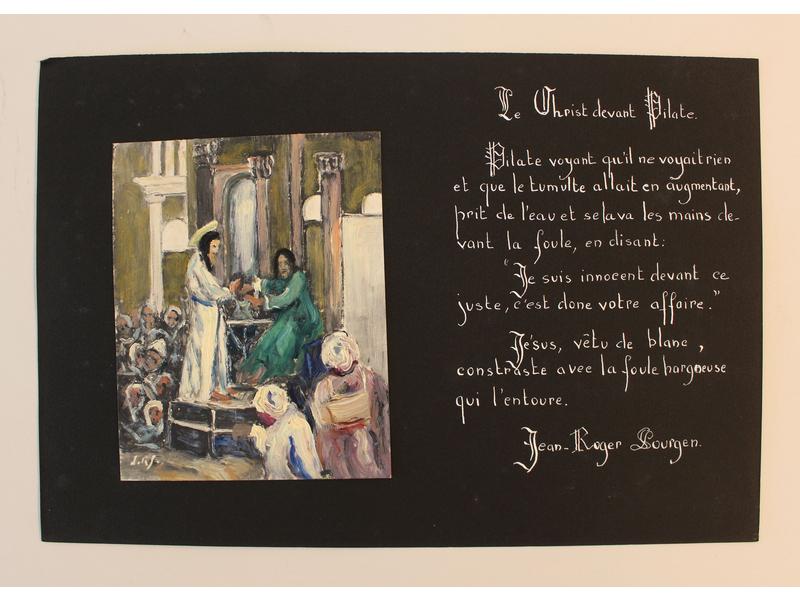 Le Christ devant Pilate.
Pilate voyant qu'il ne voyait rien
et que le tumulte allait en augmentant,
prit de l'eau et se lava les mains de-
vant la foule, en disant:
"Je suis innocent devant ce
juste, c'est donc votre affaire."
Jésus, vêtu de blanc,
constraste avec la foule hargneuse
qui l'entoure.
Jean-Roger Sourgen.
J.RS.